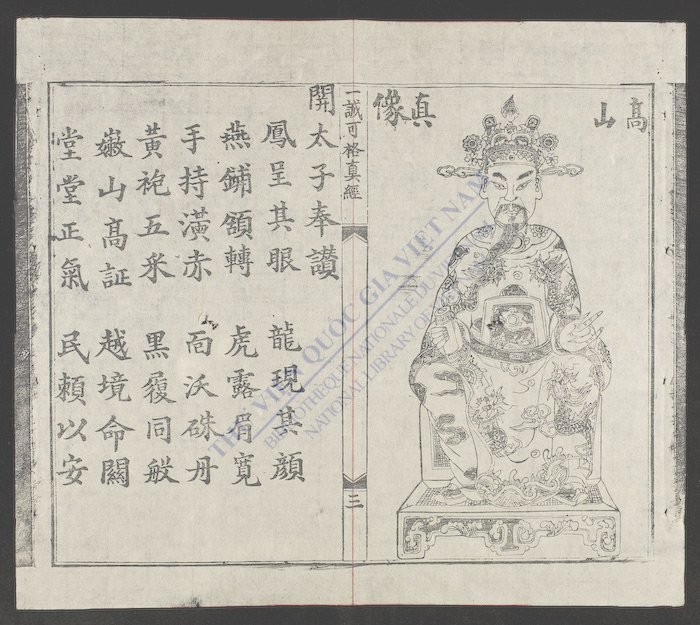 高山
真像
一誠可格真經
三
開太子奉讚
鳳呈其眼 龍現其顔
燕鋪頷轉 虎露寬
手持潢赤 面沃硃丹
黃袍五采 黑履同般
山高証 越境命關
堂堂正氣 民賴以安
THƯ VIỆN QUỐC GIA VIỆT NAM
BIBLIOTHÈQUE NATIONALE DU VIETNAM
NATIONAL LIBRARY OF VIETNAM